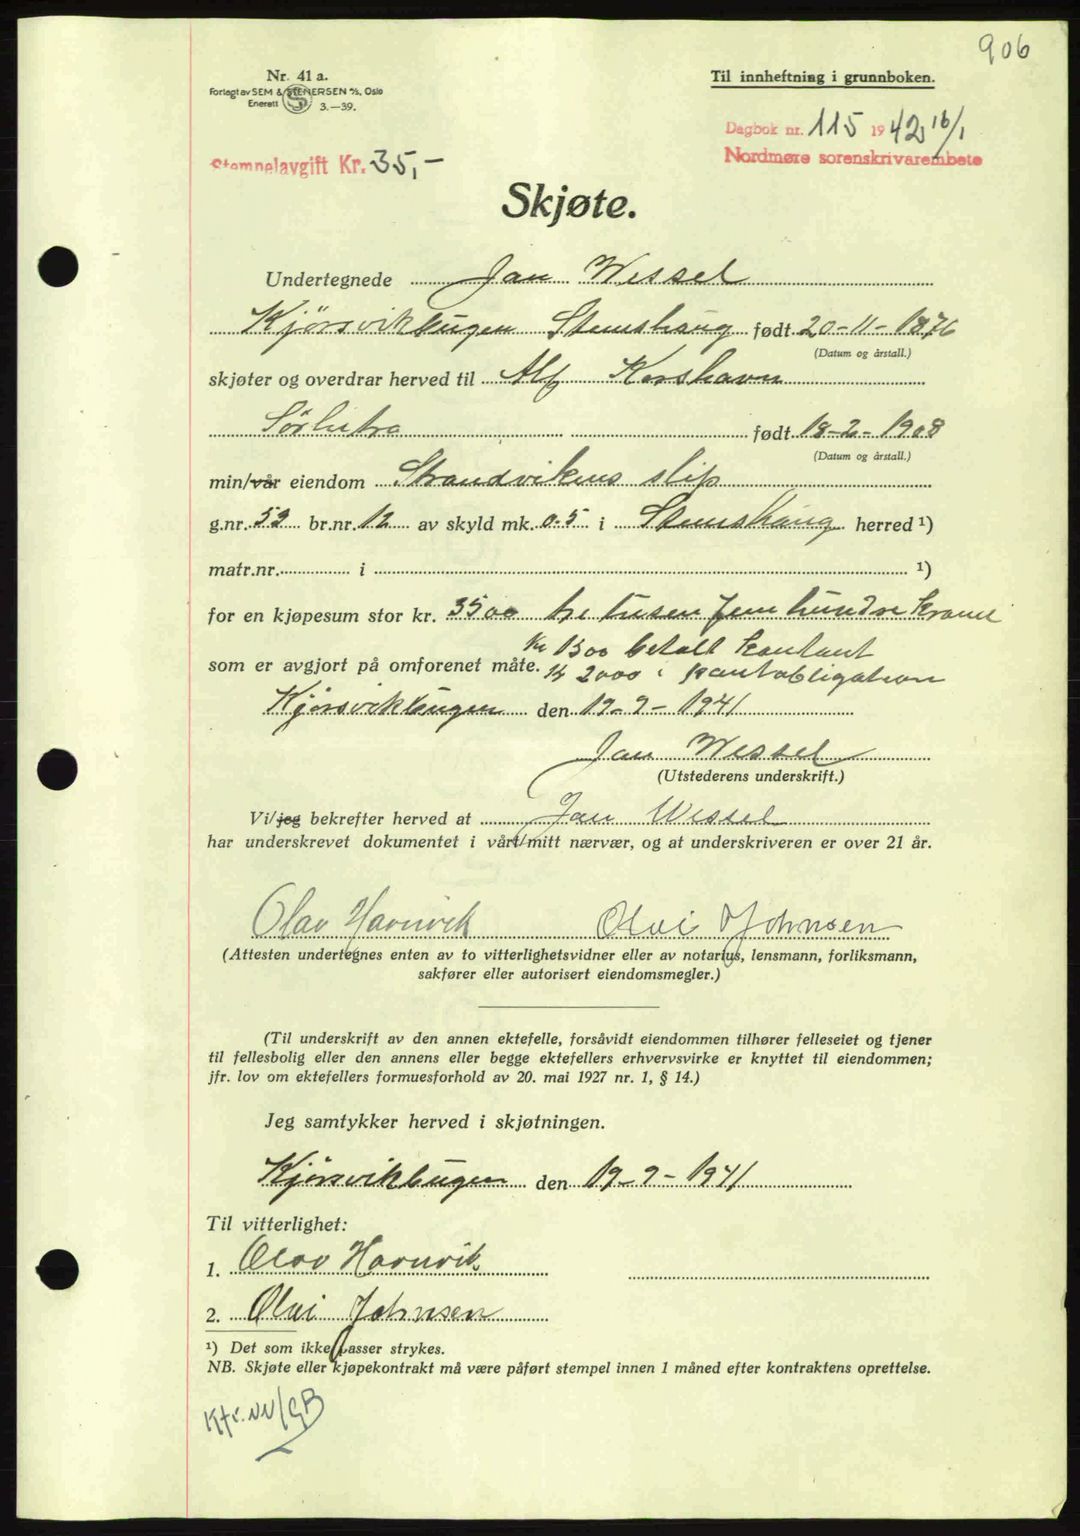 906
Nr. 41 a.
Forlagt av SEM & STENERSEN A/S, Oslo
Enerett S 3.—39.
Til innheftning i grunnboken.
Dagbok nr. 115 1942 16/1
Nordmøre sorenskrivarembete
Stempelavgift Kr. 35,-
Skjøte.
Undertegnede Jan Wessel
Kjørsvikbugen Stemshaug født 20-11-1876
(Datum og årstall.)
skjøter og overdrar herved til Alf Korshavn
Sørhitra født 18-2-1908
(Datum og årstall.)
min/vår eiendom Strandvikens slip
g.nr. 53 br.nr. 12 av skyld mk. 0.5 i Stemshaug herred ¹)
matr.nr. i ¹)
for en kjøpesum stor kr. 3500 tre tusen fem hundre kroner
Kr 1500 betalt kontant
som er avgjort på omforenet måte. Kr 2000 i pantobligation
Kjørsvikbugen den 19-9-1941
Jan Wessel
(Utstederens underskrift.)
Vi/jeg bekrefter herved at Jan Wessel
har underskrevet dokumentet i vårt/mitt nærvær, og at underskriveren er over 21 år.
Olav Havnvik Olai Johnsen
(Attesten undertegnes enten av to vitterlighetsvidner eller av notarius, lensmann, forliksmann,
sakfører eller autorisert eiendomsmegler.)
(Til underskrift av den annen ektefelle, forsåvidt eiendommen tilhører felleseiet og tjener
til fellesbolig eller den annens eller begge ektefellers erhvervsvirke er knyttet til eiendommen;
jfr. lov om ektefellers formuesforhold av 20. mai 1927 nr. 1, § 14.)
Jeg samtykker herved i skjøtningen.
Kjørsvikbugen den 19-9-1941
Til vitterlighet:
1. Olav Havnvik
2. Olai Johnsen
¹) Det som ikke passer strykes.
NB. Skjøte eller kjøpekontrakt må være påført stempel innen 1 måned efter kontraktens oprettelse.